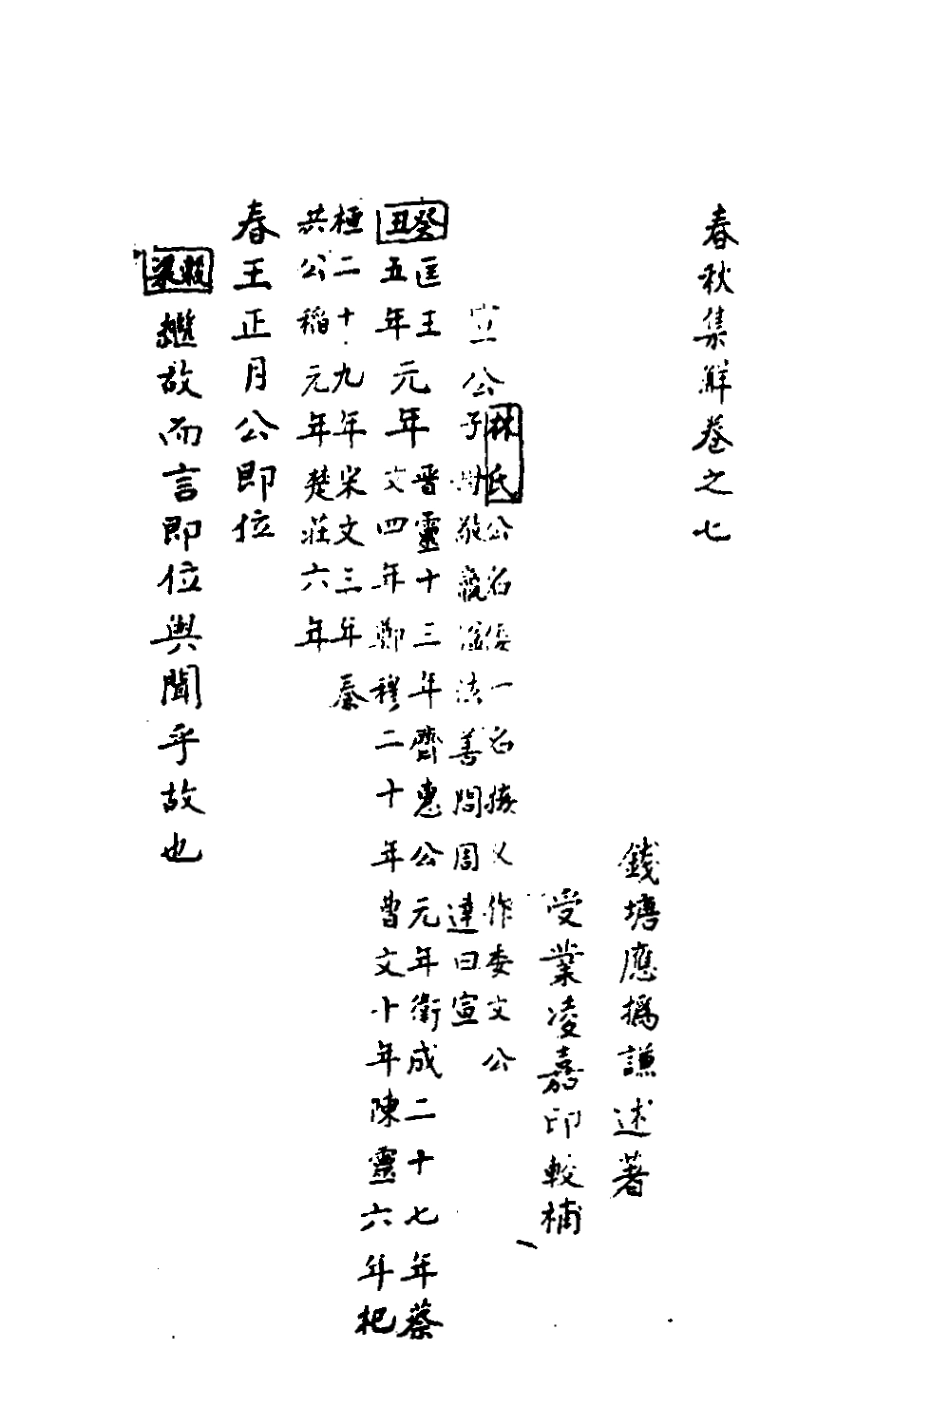 春秋集觧卷之七
錢塘應撝謙述著
受業凌嘉印較補
宣公
林氏公名倭一名接又作委文公
子母敬嬴謚法善問周達曰宣
癸丑
匡王
五年
元年
晉靈十三年齊惠公元年衛成二十七年蔡
文四年鄭穆二十年曹文十年陳靈六年杞
桓二十九年宋文三年秦
共公稻元年楚莊六年
春王正月公即位
穀梁繼故而言即位與聞乎故也